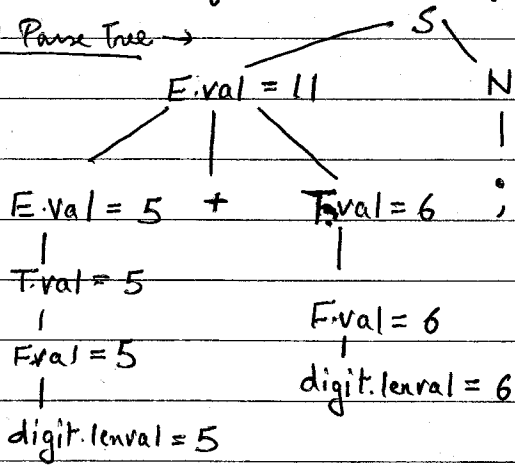 Parse Tree → S
E.val = 11 N
E.val = 5 + T.val = 6 ;
T.val = 5
F.val = 6
F.val = 5
digit.lenval = 6
digit.lenval = 5